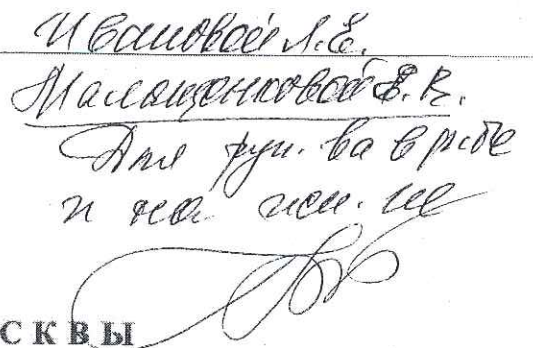 Ивановой Л.Е.
Малощенковой Е.В.
Для рук-ва в р-те
и на исп-ие
СКВЫ